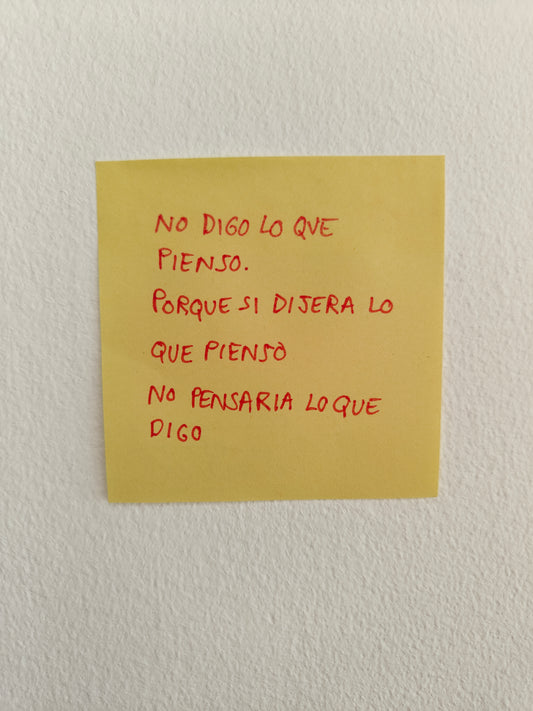 NO DIGO LO QUE
PIENSO.
PORQUE SI DIJERA LO
QUE PIENSO
NO PENSARIA LO QUE
DIGO